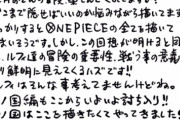 まで隠せばいいのか悩みながら描いてます
っかりすると ⓍNEPIECEの全てを描いて
まいそうです。しかしこの回想が明けると同
ルフィ達の冒険の重要性、戦う事の意義
り鮮明に見えてくるハズです!!
フィはそんな事考えてませんけどね。
ノ国編もここからいよいよ討ち入り!!
ノ国はここ描きたくてやってきました!!